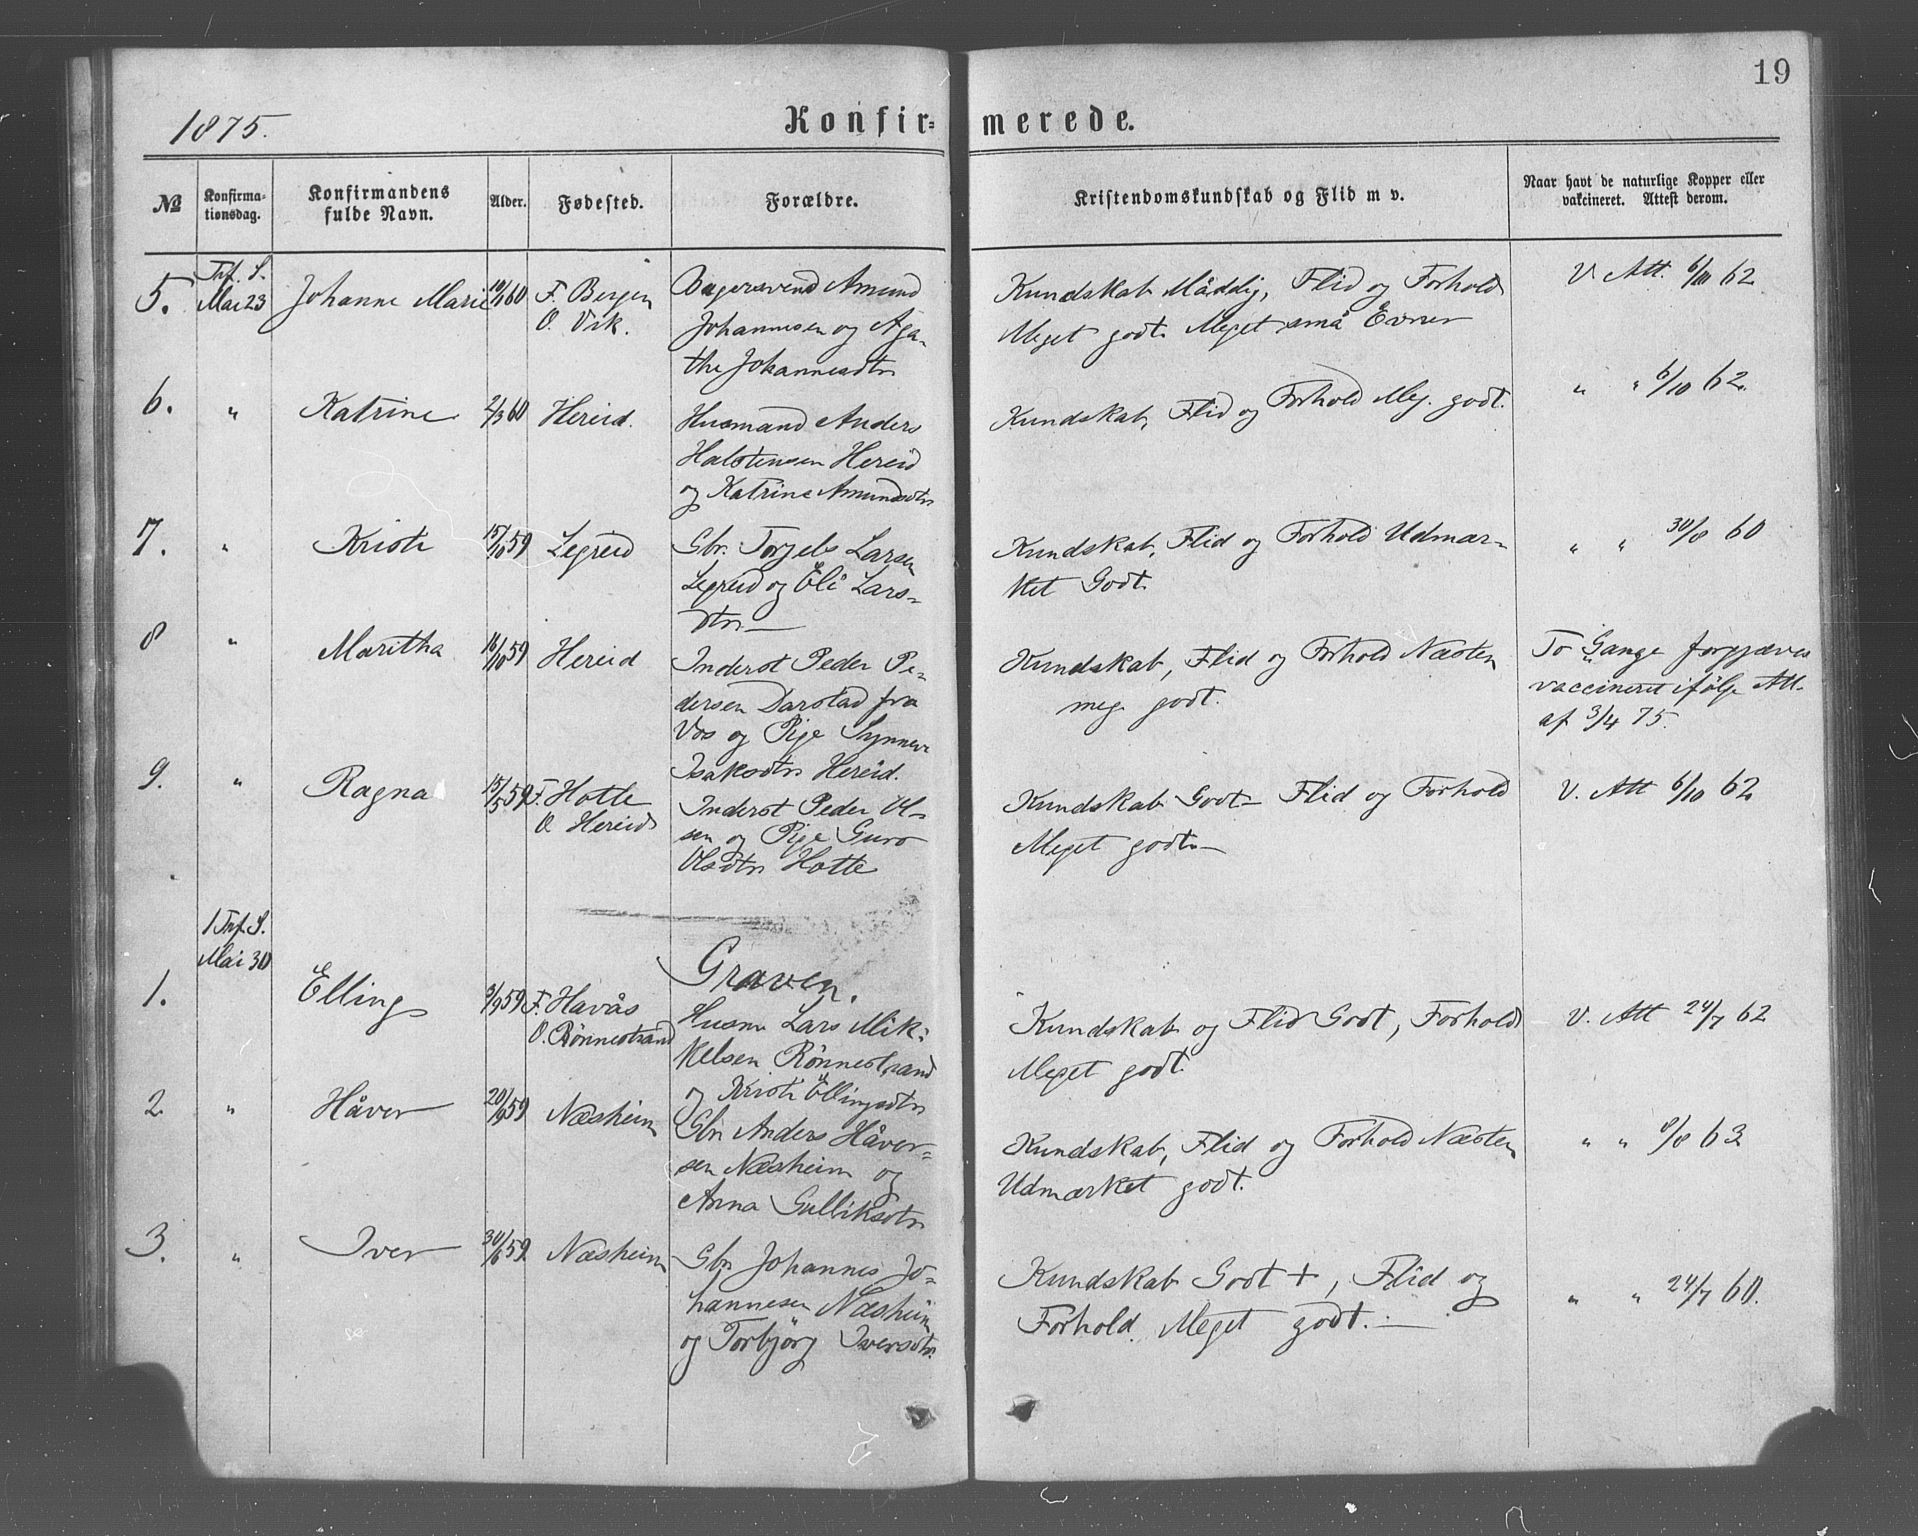 19
1875.
Konfir=merede.
№
Konfirma-
tionsdag.
Konfirmandens
fulde Navn.
Alder.
Fødested.
Forældre.
Kristendomskundskab og Flid m v.
Naar havt de naturlige Kopper eller
vakcineret. Attest derom.
5.
Trf. S.
Mai 23
Johanne Marie
60
F. Bergen
O. Vik.
Bagersvend Amund
Johannesen og Aga-
the Johannesdtr
Kundskab Måddlig, Flid og Forhold
Meget godt. Meget små Evner
V. Att. 6/10 62
6.
"
Katrine
2/3 60
Hereid.
Husmand Anders
Halstensen Hereid
og Katrine Amundsdtr
Kundskab, Flid og Forhold Meg. godt.
" " 6/10 62.
7.
"
Kristi
15/10 59
Legreid
Gbr. Torjels Larsen
Legreid og Eli Lars-
dtr.—
Kundskab, Flid og Forhold Udmær-
ket Godt.
" " 30/8 60
8
"
Maritha
16/10 59
Hereid
Inderst Peder Pe-
dersen Darstad fra
Vos og Pige Synneve
Isaksdtr Hereid.
Kundskab, Flid og Forhold Næsten
meg. godt.
To Gange forgjæves
vaccineret ifölge Att.
af 3/4 75.
9.
"
Ragna
15/5 59
F. Hotle
O. Hereid
Inderst Peder Ol-
sen og Pige Guro
Olsdtr Hotle
Kundskab Godt— Flid og Forhold
Meget godt.—
V. Att 6/10 62
1 Trf. S.
Mai 30
Graven.
1.
Elling
3/9 59
F. Havås
O. Rönnestrand
Husm Lars Mik-
kelsen Rönnestrand
og Kristi Ellingsdtr
Kundskab og Flid Godt, Forhold
Meget godt.
V. Att 24/7 62
2
"
Håver
20/9 59
Næsheim
Gbr Anders Håver-
sen Næsheim og
Anna Gulliksdtr
Kundskab, Flid og Forhold Næsten
Udmærket godt.
" " /8 63
3.
"
Iver
30/6 59.
Næsheim
Gbr Johannes Jo-
hannesen Næsheim
og Torbjörg Iversdtr.
Kundskab Godt +, Flid og
Forhold Meget godt.—
" " 24/7 60.